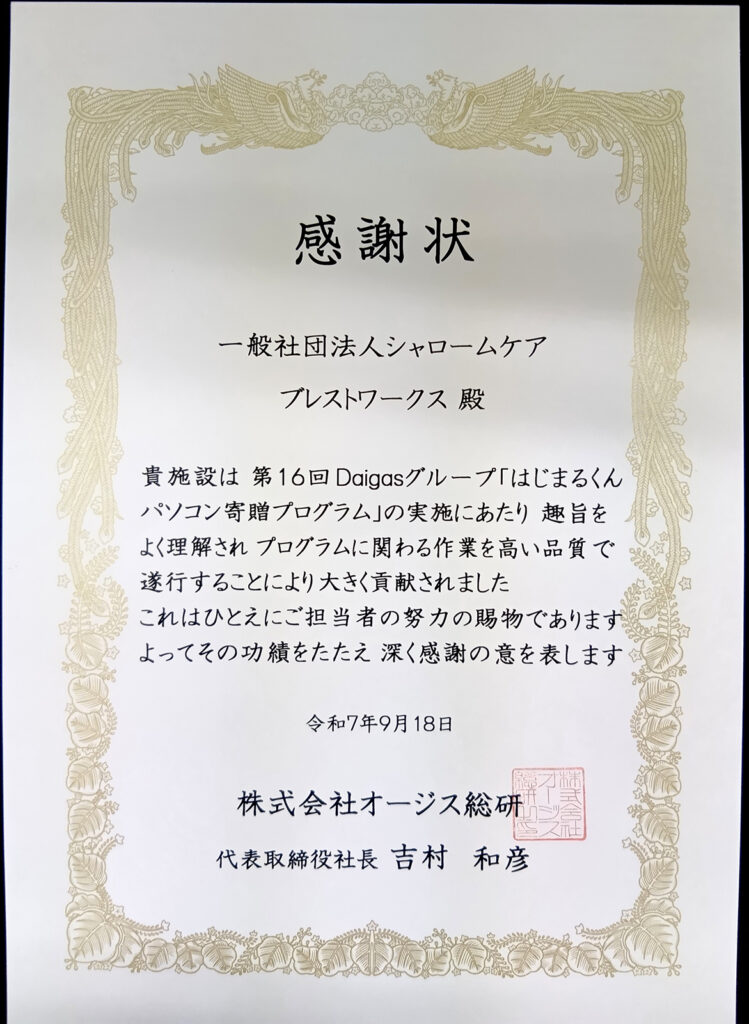 感謝状
一般社団法人シャロームケア
ブレストワークス 殿
貴施設は 第16回Daigasグループ「はじまるくん
パソコン寄贈プログラム」の実施にあたり 趣旨を
よく理解され プログラムに関わる作業を高い品質で
遂行することにより大きく貢献されました
これはひとえにご担当者の努力の賜物であります
よってその功績をたたえ 深く感謝の意を表します
令和7年9月18日
株式会社オージス総研
代表取締役社長 吉村 和彦
株式会社
オージス
総研之印